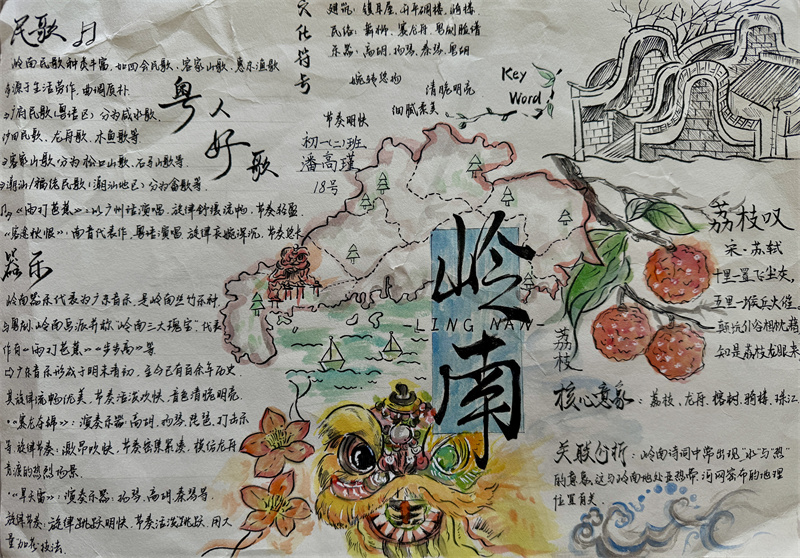 民歌
岭南民歌种类丰富,如四会民歌、客家山歌、惠东渔歌
源于生活劳作,曲调质朴
府民歌(粤语区)分为咸水歌、
沙田民歌、龙舟歌、木鱼歌等
客家山歌分为松口山歌、石马山歌等。
潮汕/福佬民歌(潮汕地区)分为畲歌等。
《雨打芭蕉》:以广州话演唱,旋律舒缓流畅,节奏轻盈
南音代表作,粤语演唱,旋律哀婉深沉,节奏
粤人好歌
器乐
岭南器乐代表为广东音乐,是岭南丝竹乐种,
与粤剧、岭南画派并称"岭南三大瑰宝"代表
作有《雨打芭蕉》《步步高》等
广东音乐形成于明末清初,至今已有百余年历史
其旋律流畅优美,节奏活泼欢快,音色清脆明亮.
·《赛龙夺锦》:演奏乐器:高胡、扬琴、琵琶、打击乐
旋律节奏:激昂欢快,节奏密集紧凑,模仿龙舟
竞渡的热烈场景.
·《旱天雷》:演奏乐器:扬琴、高胡、秦琴等.
旋律节奏:旋律跳跃明快,节奏活泼跳跃,用大
量加花技法.
文化符号
建筑:镬耳屋、开平碉楼、骑楼
民俗:舞狮、赛龙舟、粤剧脸谱
乐器:高胡、扬琴、秦琴、粤胡
婉转悠扬
清脆明亮
细腻柔美
节奏明快
Key
Word
初一(二)班
潘高瑾
18号
岭南
-LING NAN-
荔枝
荔枝叹
宋·苏轼
十里一置飞尘灰,
五里一堠兵火催
颠坑仆谷相枕藉
知是荔枝龙眼来
核心意象:荔枝、龙舟、榕树、骑楼、珠江.
关联分析:岭南诗词中常出现"水"与"热"
的意象,这与岭南地处亚热带、河网密布的地理
位置有关.